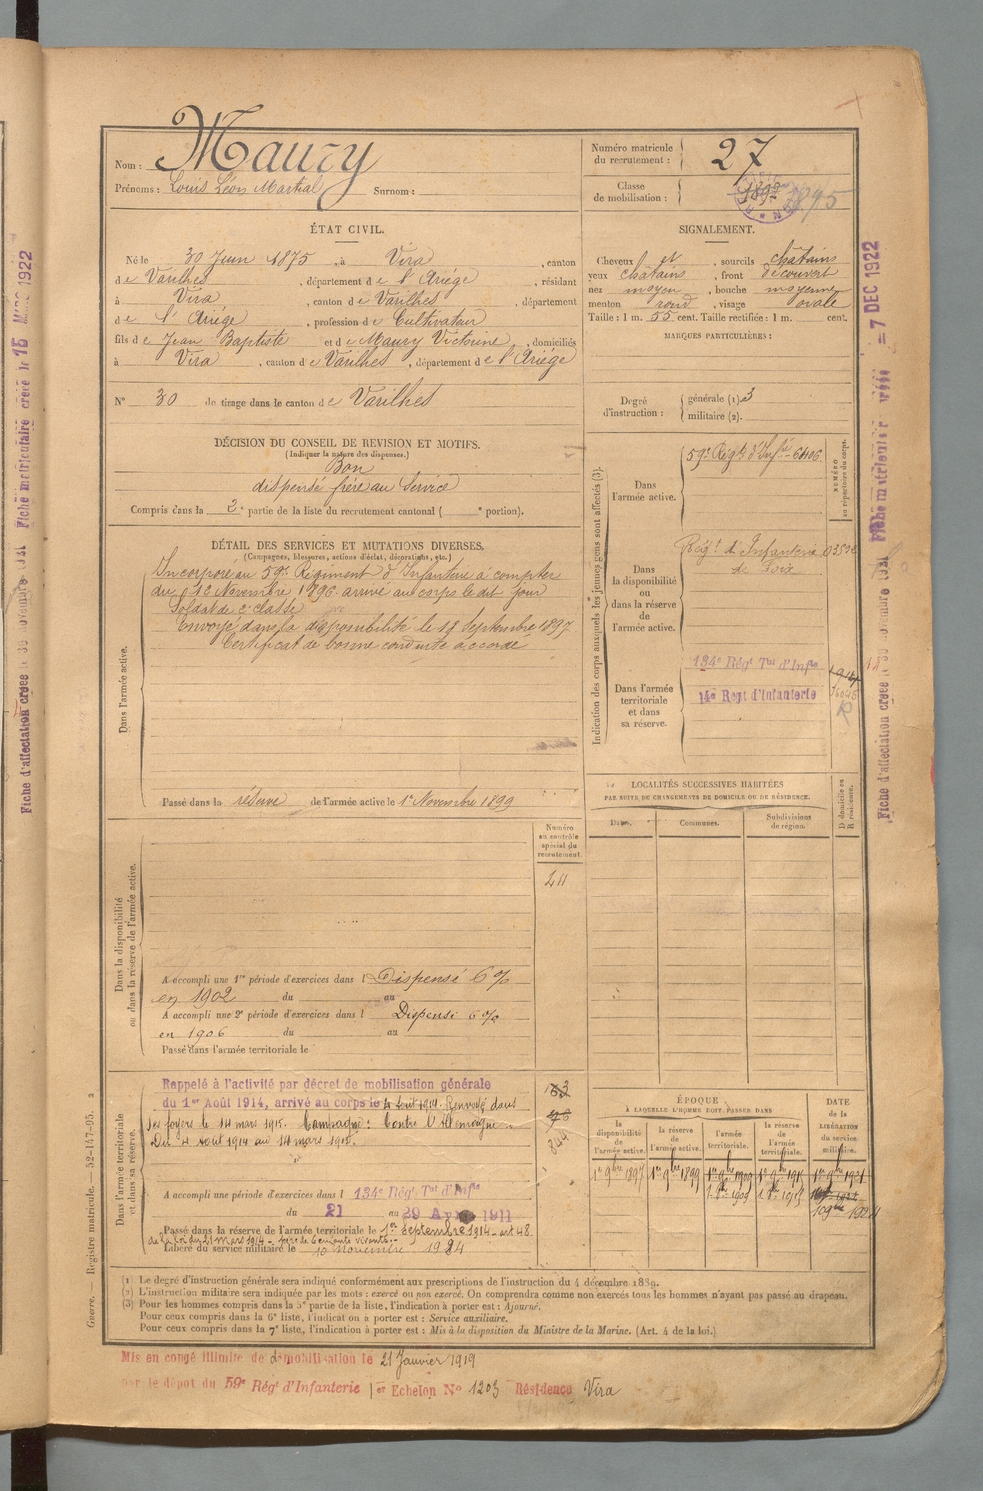 Nom : Maury
Prénoms : Louis Léon Martial Surnom :
Numéro matricule du recrutement : 27
Classe de mobilisation : 1895
ÉTAT CIVIL.
Né le 30 Juin 1875, à Vira, canton
de Varilhes, département de l'Ariège, résidant
à Vira, canton de Varilhes, département
de l'Ariège, profession de Cultivateur
fils de Jean Baptiste et de Maury Victorine, domiciliés
à Vira, canton de Varilhes, département de l'Ariège
N° 30 de tirage dans le canton de Varilhes
SIGNALEMENT.
Cheveux et, sourcils chatains
yeux chatains, front découvert
nez moyen, bouche moyenne
menton rond, visage ovale
Taille : 1 m. 55 cent. Taille rectifiée : 1 m. cent.
MARQUES PARTICULIÈRES :
Degré d'instruction : générale (1). 3
militaire (2).
DÉCISION DU CONSEIL DE REVISION ET MOTIFS.
(Indiquer la nature des dispenses.)
Bon
dispensé frère au Service
Compris dans la 2e partie de la liste du recrutement cantonal ( e portion).
DÉTAIL DES SERVICES ET MUTATIONS DIVERSES.
(Campagnes, blessures, actions d'éclat, décorations, etc.)
Dans l'armée active.
Incorporé au 59e Régiment d'Infanterie à compter
du 12 Novembre 1896 arrivé au corps le dit jour
Soldat de 2e classe
Envoyé dans la disponibilité le 18 Septembre 1897
Certificat de bonne conduite accordé
Passé dans la réserve de l'armée active le 1er Novembre 1899
Indication des corps auxquels les jeunes gens sont affectés (3).
NUMÉRO au répertoire du corps.
Dans l'armée active.
59e Régt d'Infie 6406
Dans la disponibilité ou dans la réserve de l'armée active.
Régt d'Infanterie
de Foix
Dans l'armée territoriale et dans sa réserve.
134e Régt Tal d'Infie
14e Regt d'Infanterie
LOCALITÉS SUCCESSIVES HABITÉES
PAR SUITE DE CHANGEMENTS DE DOMICILE OU DE RÉSIDENCE.
Dates. Communes. Subdivisions de région. D domicile ou R résidence.
Numéro au contrôle spécial du recrutement.
211
Dans la disponibilité ou dans la réserve de l'armée active.
A accompli une 1re période d'exercices dans l Dispensé 6 %
en 1902 du au
A accompli une 2e période d'exercices dans l Dispensé 6 %
en 1906 du au
Passé dans l'armée territoriale le
Dans l'armée territoriale et dans sa réserve.
Rappelé à l'activité par décret de mobilisation générale
du 1er Août 1914, arrivé au corps le 4 août 1914. Renvoyé dans
ses foyers le 14 mars 1915. Campagne : Contre l'Allemagne
Du 4 août 1914 au 14 mars 1915.
A accompli une période d'exercices dans l 134e Régt Tal d'Infie
du 21 au 29 Avril 1911
Passé dans la réserve de l'armée territoriale le 1er Septembre 1914 - art 48
de la loi du 21 mars 1914 - père de 6 enfants vivants.
Libéré du service militaire le 10 novembre 1924
ÉPOQUE
À LAQUELLE L'HOMME DOIT PASSER DANS
la disponibilité de l'armée active. la réserve de l'armée active. l'armée territoriale. la réserve de l'armée territoriale.
DATE de la LIBÉRATION du service militaire.
1er 9bre 1897 1er 9bre 1899 1er 9bre 1909 1er 9bre 1915 1er 9bre 1921
(1) Le degré d'instruction générale sera indiqué conformément aux prescriptions de l'instruction du 4 décembre 1889.
(2) L'instruction militaire sera indiquée par les mots : exercé ou non exercé. On comprendra comme non exercés tous les hommes n'ayant pas passé au drapeau.
(3) Pour les hommes compris dans la 5e partie de la liste, l'indication à porter est : Ajourné.
Pour ceux compris dans la 6e liste, l'indication à porter est : Service auxiliaire.
Pour ceux compris dans la 7e liste, l'indication à porter est : Mis à la disposition du Ministre de la Marine. (Art. 4 de la loi.)
Mis en congé illimité de démobilisation le 21 Janvier 1919
par le dépot du 59e Régt d'Infanterie 1er Echelon No 1203 Résidence Vira
Guerre. — Registre matricule. — 52-147-95. 2
Fiche d'affectation créée le 30 novembre 1921 Fiche matriculaire créée le 15 MARS 1922
Fiche d'affectation créée le 30 novembre 1921 Fiche matriculaire = 7 DEC 1922